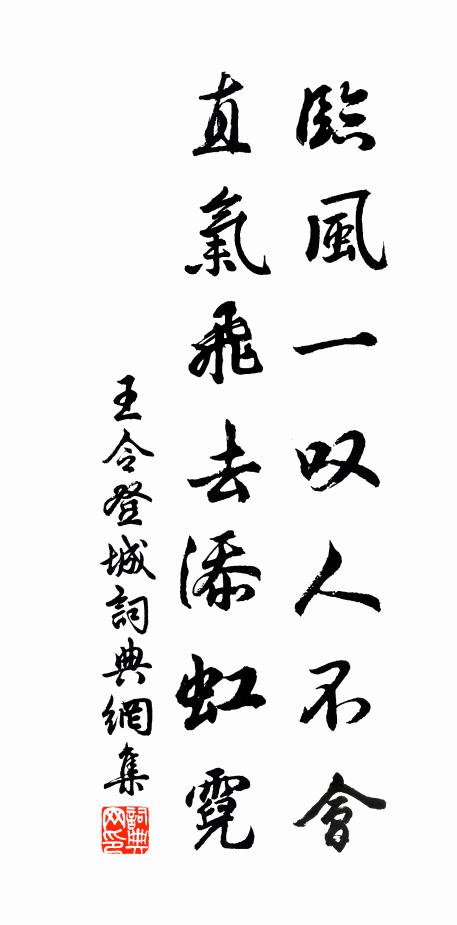 臨風一叹人不會
直氣飛去添虹霓
王令登城詞典網集
詞典网印